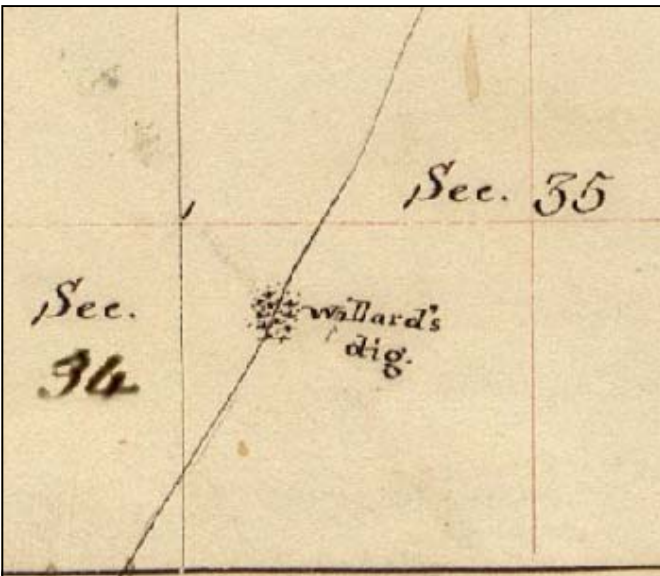 Sec. 35
Sec.
34
Willard's
dig.